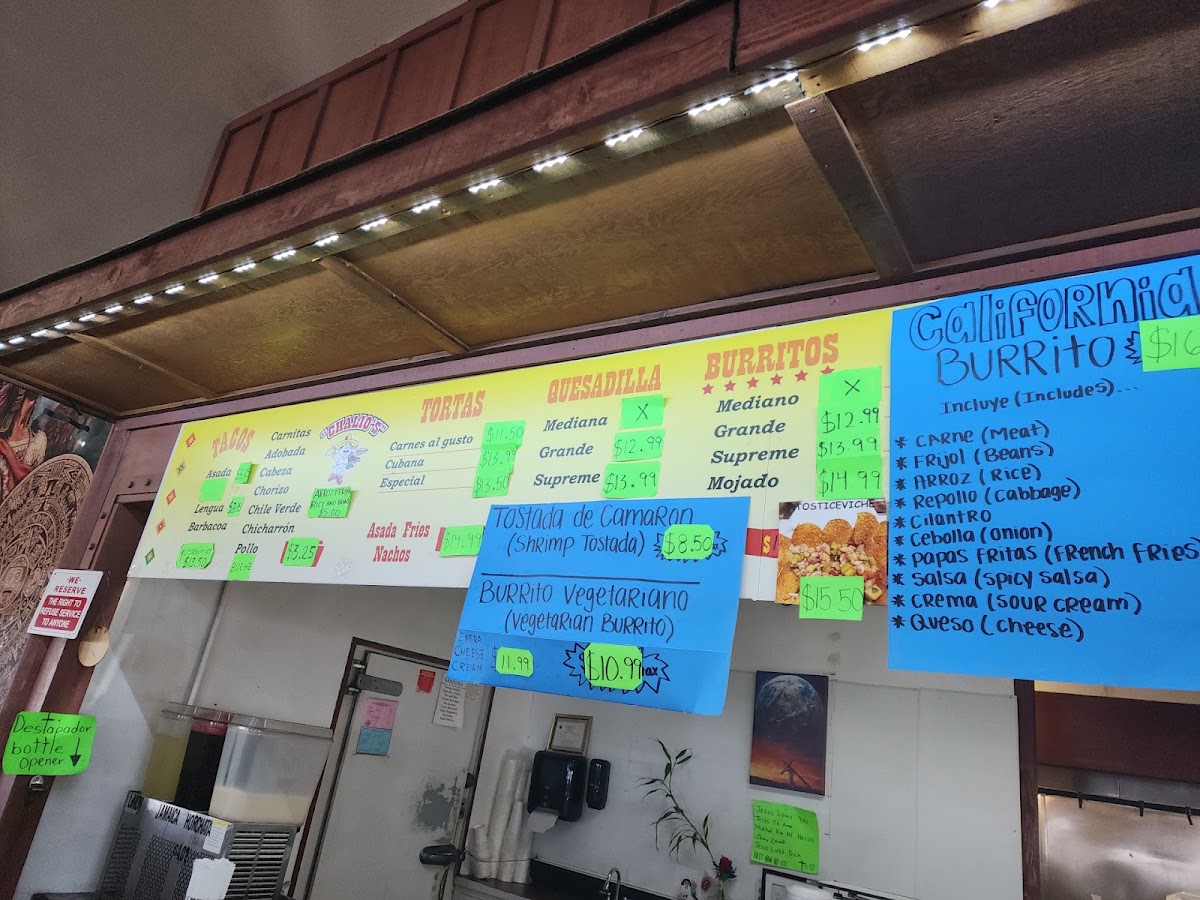 TACOS
Asada
Lengua
Barbacoa
$13.50
Carnitas
Adobada
Cabeza
Chorizo
Chile Verde
Chicharrón
Pollo
BUCHE
$3.25
"CHALIO'S"
RICE AND BEANS
$5.00
TORTAS
Carnes al gusto $11.50
Cubana $13.99
Especial $13.50
Asada Fries
Nachos
$14.99
QUESADILLA
Mediana X
Grande $12.99
Supreme $13.99
BURRITOS
Mediano X
Grande $12.99
Supreme $13.99
Mojado $14.99
TOSTICEVICHE
$15.50
Tostada de Camaron
(Shrimp Tostada) $8.50
Burrito Vegetariano
(Vegetarian Burrito)
EXTRA
CHEESE
CREAM
11.99
$10.99
California
Burrito $16
Incluye (Includes)...
* Carne (Meat)
* Frijol (Beans)
* Arroz (Rice)
* Repollo (Cabbage)
* Cilantro
* Cebolla (Onion)
* Papas Fritas (French Fries)
* Salsa (Spicy Salsa)
* Crema (Sour Cream)
* Queso (Cheese)
-WE-
RESERVE
THE RIGHT TO
REFUSE SERVICE
TO ANYONE
Destapador
bottle
opener
JAMAICA HORCHATA
Jesus Loves You